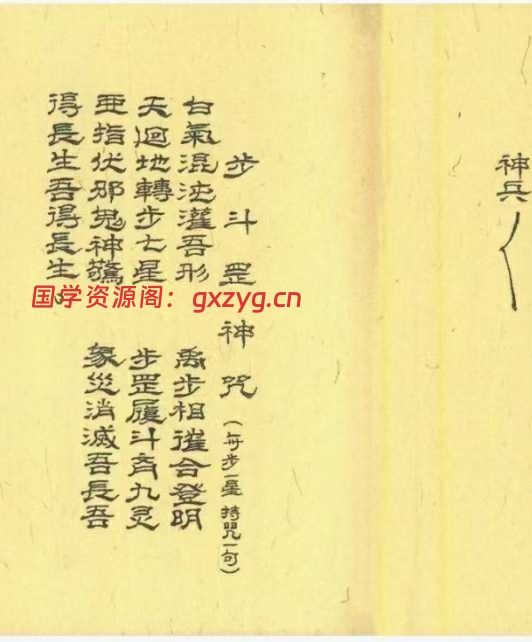 神兵
步斗罡神咒（每步一星 持咒一句）
白氣混沌灌吾形 禹步相催合登明
天迴地轉步七星 步罡履斗齊九灵
亜指伏邪鬼神驚 衆災消滅吾長吾
得長生吾得長生
国学资源阁：gxzyg.cn